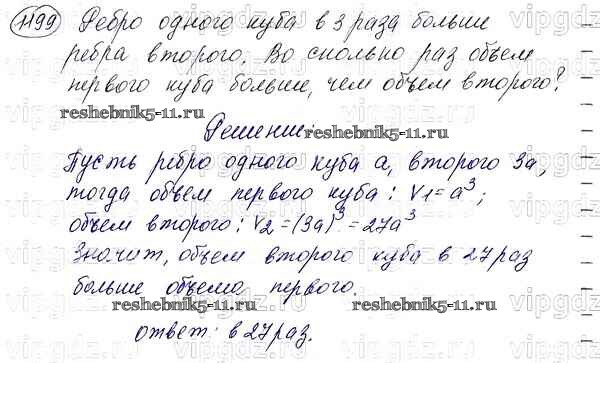 1199 Ребро одного куба в 3 раза больше
ребра второго. Во сколько раз объем
первого куба больше, чем объем второго?
reshebnik5-11.ru
reshebnik5-11.ru
Решение:
Пусть ребро одного куба а, второго 3а,
тогда объем первого куба: V1 = a³;
объем второго: V2 = (3a)³ = 27a³
Значит, объем второго куба в 27 раз
больше объема первого.
reshebnik5-11.ru
reshebnik5-11.ru
ответ: в 27 раз.
vipgdz